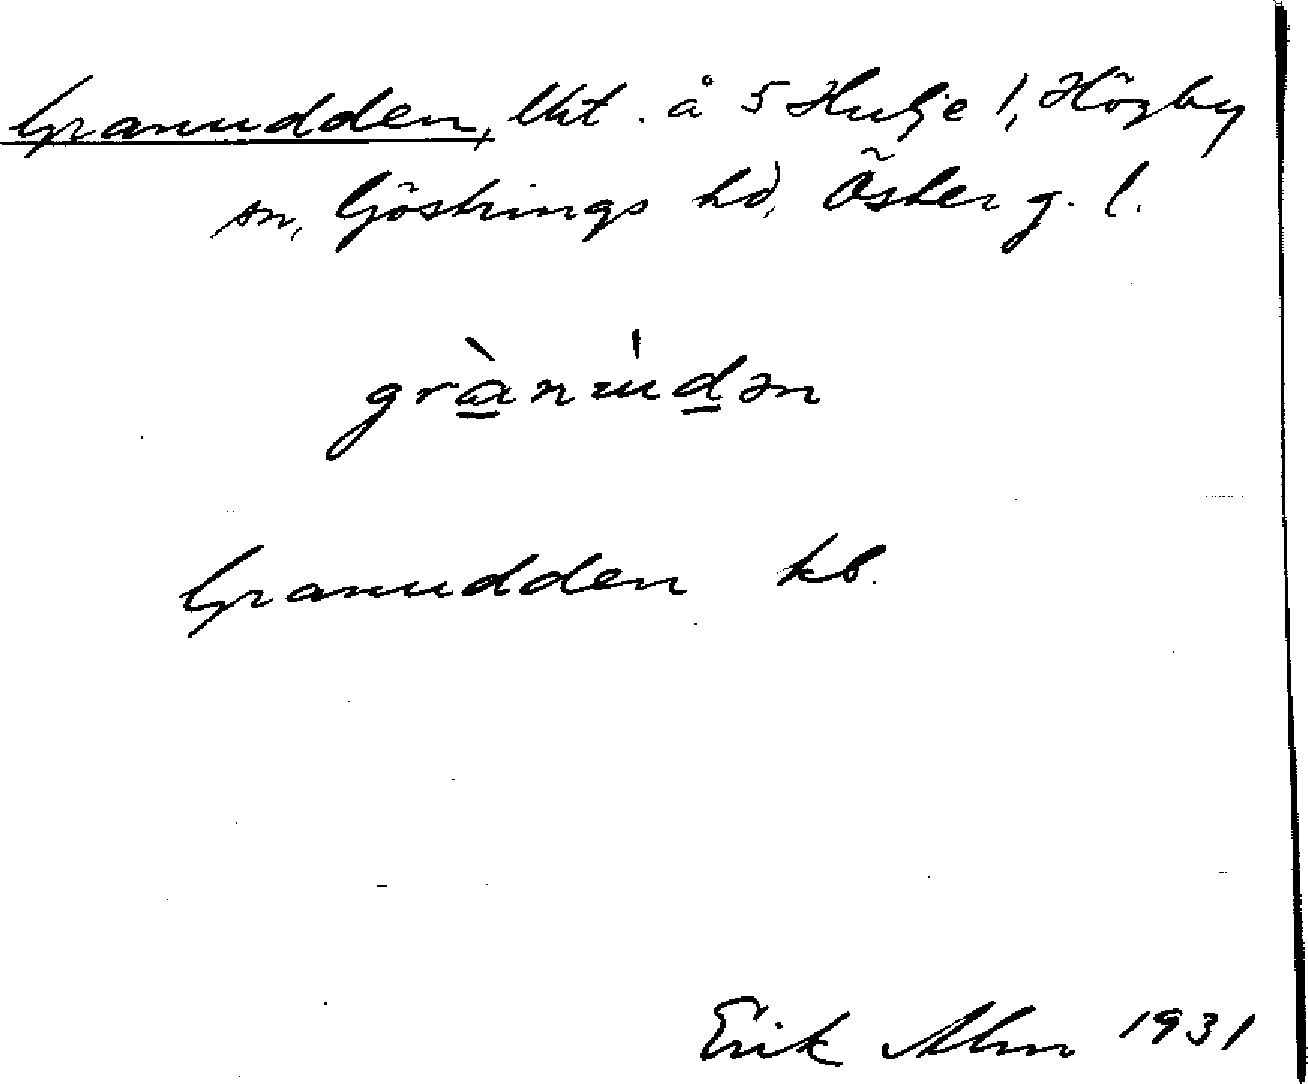 Granudden, lht. å 5 Hulje 1, Högby
sn, Göstrings hd, Österg. l.
grànu̍dən
Granudden kb.
Erik Alm 1931